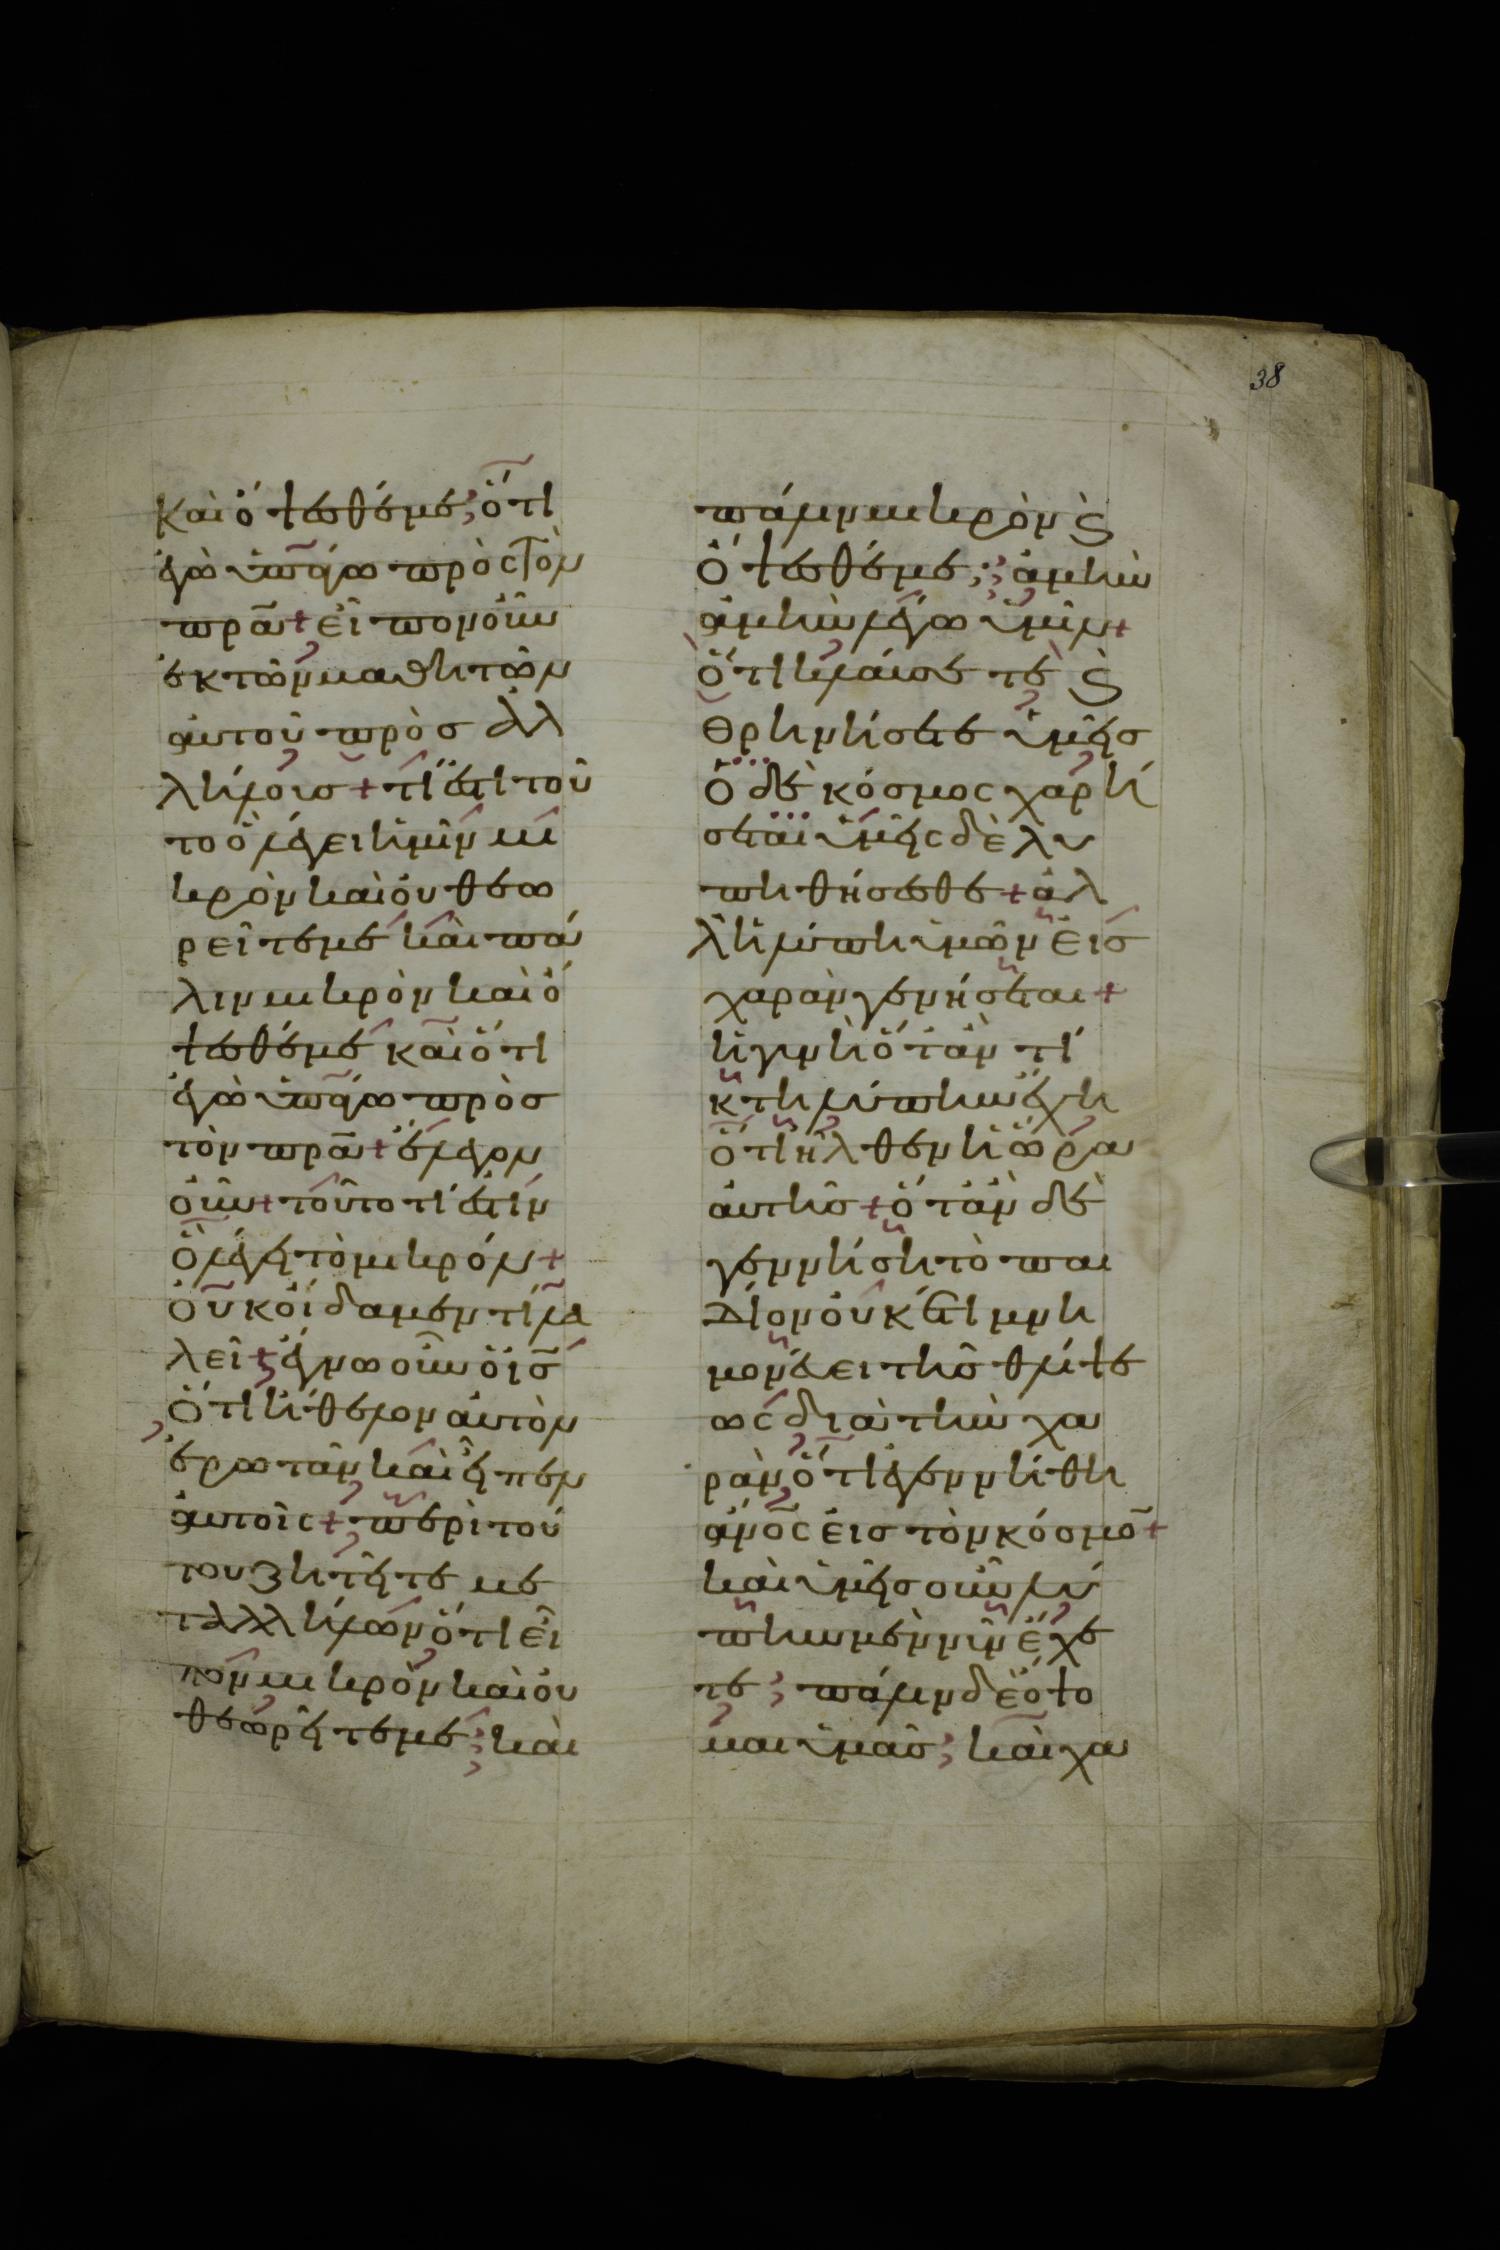 Καὶ ὄψεσθέ με; ὅτι
ἐγὼ ὑπάγω πρὸς τὸν
πρ̅α + εἶπον οὖν
ἐκ τῶν μαθητῶν
αὐτοῦ πρὸς ἀλ
λήλοις + τί ἐστι τοῦ
το ὃ λέγει ἡμῖν μι
κρὸν καὶ οὐ θεω
ρεῖτέ με καὶ πά
λιν μικρὸν καὶ ὄ
ψεσθέ με καὶ ὅτι
ἐγὼ ὑπάγω πρὸς
τὸν πρ̅α + ἔλεγον
οὖν + τοῦτο τί ἐστιν
Ὃ λέγει τὸ μικρόν +
Οὐκ οἴδαμεν τί λα
λεῖ + ἔγνω οὖν ὁ ι̅ς
Ὅτι ἤθελον αὐτὸν
ἐρωτᾶν καὶ εἶπεν
αὐτοῖς + περὶ τού
του ζητεῖτε με
τ ἀλλήλων ὅτι εἶ
πον μικρὸν καὶ οὐ
θεωρεῖτέ με; καὶ
πάλιν μικρὸν ϗ
Ὄψεσθέ με; ἀμὴν
ἀμὴν λέγω ὑμῖν +
Ὅτι κλαύσετε ϗ
Θρηνήσετε ὑμεῖς
Ὁ δὲ κόσμος χαρή
σεται ὑμεῖς δὲ λυ
πηθήσεσθε + ἀλ
λ ἡ λύπη ὑμῶν εἰς
χαρὰν γενήσεται +
ἡ γυνὴ ὅταν τί
κτη λύπην ἔχει
Ὅτι ἦλθεν ἡ ὥρα
αὐτῆς + ὅταν δὲ
γεννήσῃ τὸ παι
Δίον οὐκ έτι μνη
μονεύει τῆς θλίψε
ως διὰ τὴν χα
ρὰν ὅτι ἐγεννήθη
ἄν̅ος εἰς τὸν κόσμο̅ +
καὶ ὑμεῖς οὖν λύ
πην μὲν νῦν ἔχε
τε; πάλιν δὲ ὄψο
μαι ὑμᾶς; καὶ χα
38